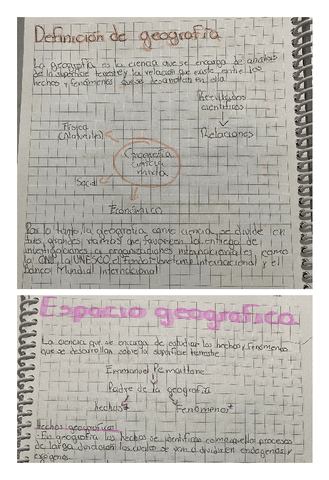 Definición de geografía
La geografía es la ciencia que se encarga de analisis
de la superficie terrestre y la relacion que existe entre los
hechos y fenómenos que se desarrollan en ella
Resultados
científicos
Física
(Naturales)
Relaciones
Geografía
ciencia
mixta
Social
Económico
Por lo tanto, la geografía como ciencia se divide en
tres grandes ramas que favorecen la entrega de
investigaciones a organizaciones internacionales como
la ONU, la UNESCO, el Fondo Monetario Internacional y el
Banco Mundial Internacional
Espacio geografico
La ciencia que se encarga de estudiar los hechos y fenómenos
que se desarrollan sobre la superficie terrestre
Emmanuel
Padre de la geografía
hechos
Fenomenos
Hechos geograficos
En geografía los hechos se identifican como aquellos procesos
de larga duración los cuales se van a dividir en endógenos y
exógenos